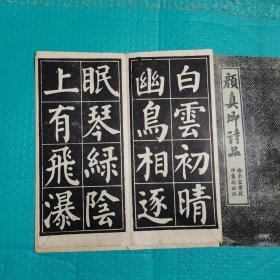 白雲初晴
幽鳥相逐
眠琴綠陰
上有飛瀑
顏真卿詩品